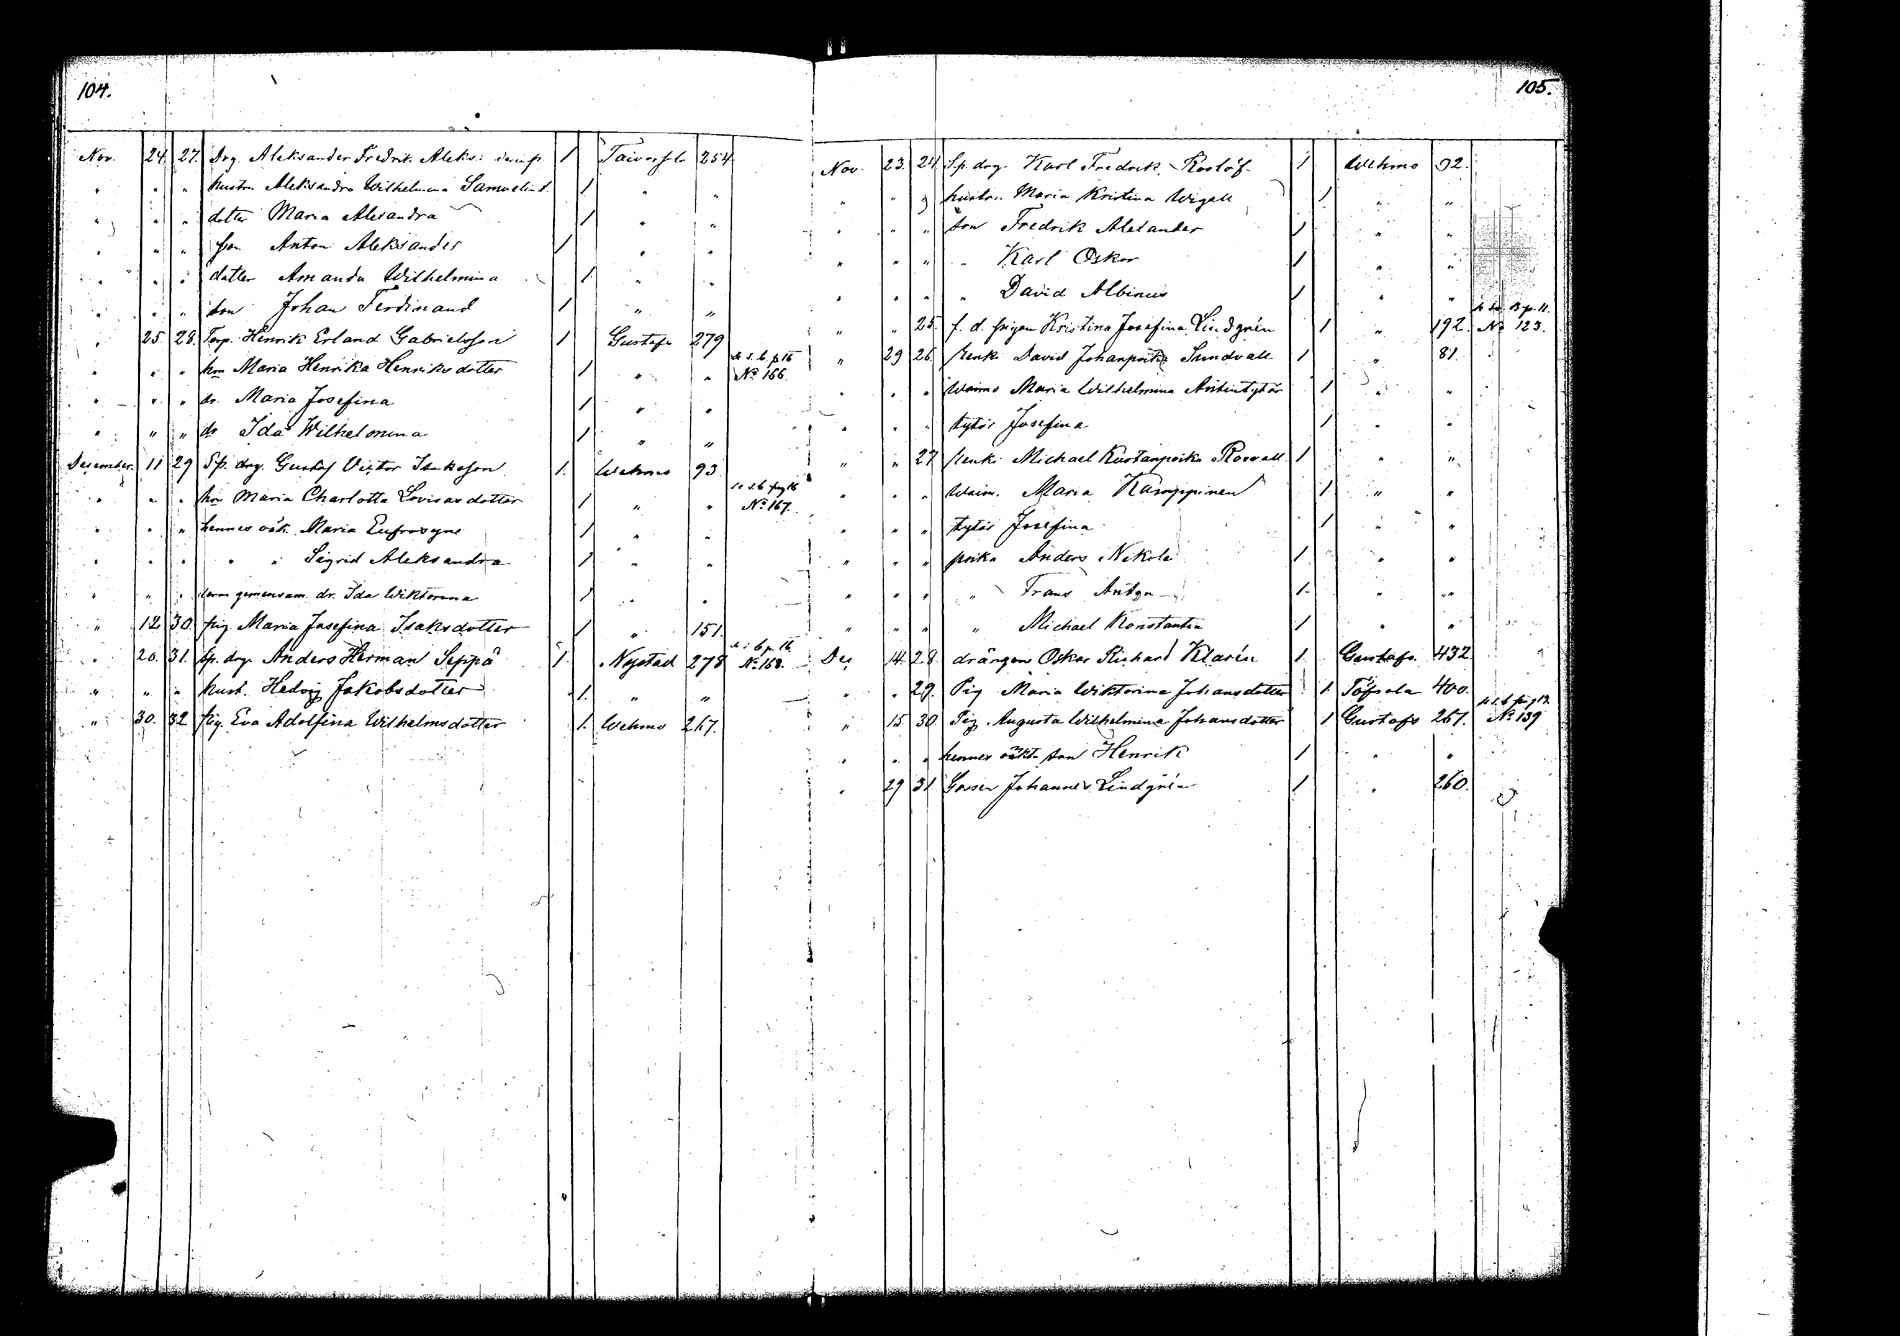 104.
Nov. 24. 27. Drg. Aleksander Fredrik Aleks: 1 Taivassalo 254
" " " hustru Aleksandra Wilhelmina Samuelsd. 1 " "
" " " dotter Maria Alexandra 1 " "
" " " son Anton Aleksander 1 " "
" " " dotter Amanda Wilhelmina 1 " "
" " " son Johan Ferdinand 1 " "
" 25. 28. Torp. Henrik Erland Gabrielsson 1 Gustafs 279
" " " hru Maria Henrika Henriksdotter 1 " " se s.b. p 16 No 166.
" " " dr. Maria Josefina 1 " "
" " " dr Ida Wilhelmina 1 " "
December. 11 29 Sp. drg. Gustaf Victor Isaksson 1. Wehmo 93
" " " hru Maria Charlotta Lovisasdotter 1 " " se s.b. pag 16 No 167.
" " " hennes oäk. Maria Eufrosyne 1 " "
" " " " " Sigrid Aleksandra 1 " "
" " " deras gemensam. dr. Ida Wiktorina 1 " "
" 12 30. pig. Maria Josefina Isaksdotter 1 " 151.
" 20. 31. Sp. drg. Anders Herman Seppä 1 Nystad 278 se s.b. p. 16. No 168.
" " " hust. Hedvig Jakobsdotter 1. " "
" 30. 32 pig. Eva Adolfina Wilhelmsdotter 1. Wehmo 267.
105.
Nov. 23. 24 Sp. drg. Karl Fredrik Roslöf 1 Wehmo 92.
" " " hustru Maria Kristina Wigell 1 " "
" " " son Fredrik Alexander 1 " "
" " " " Karl Oskar 1 " "
" " " " David Albinus 1 " "
" " 25. f. d. pigan Kristina Josefina Lindgrén 1 " 192. se s. B. p. 11. No 123.
" 29 26. Renki David Johanpoika Sundvall 1 " 81.
" " " Waimo Maria Wilhelmina Antintytär 1 " "
" " " tytär Josefina 1 " "
" " 27 Renki Michael Kustaapoika Rosvall 1 " "
" " " Waim. Maria Kamppinen 1 " "
" " " tytär Josefina 1 " "
" " " poika Anders Nikolai 1 " "
" " " " Frans Anton 1 " "
" " " " Michael Konstantin 1 " "
Dec 14. 28. drängen Oskar Richard Klarén 1. Gustafs. 432
" " 29. Pig Maria Wiktorina Johansdotter 1. Töfsala 400.
" 15 30 Pig. Augusta Wilhelmina Johansdotter 1 Gustafs 267. se s.b. pag 12. No 139
" " " hennes oäkta son Henrik 1 " "
" 29 31 Gossen Johannes Lindgrén 1 " 260.